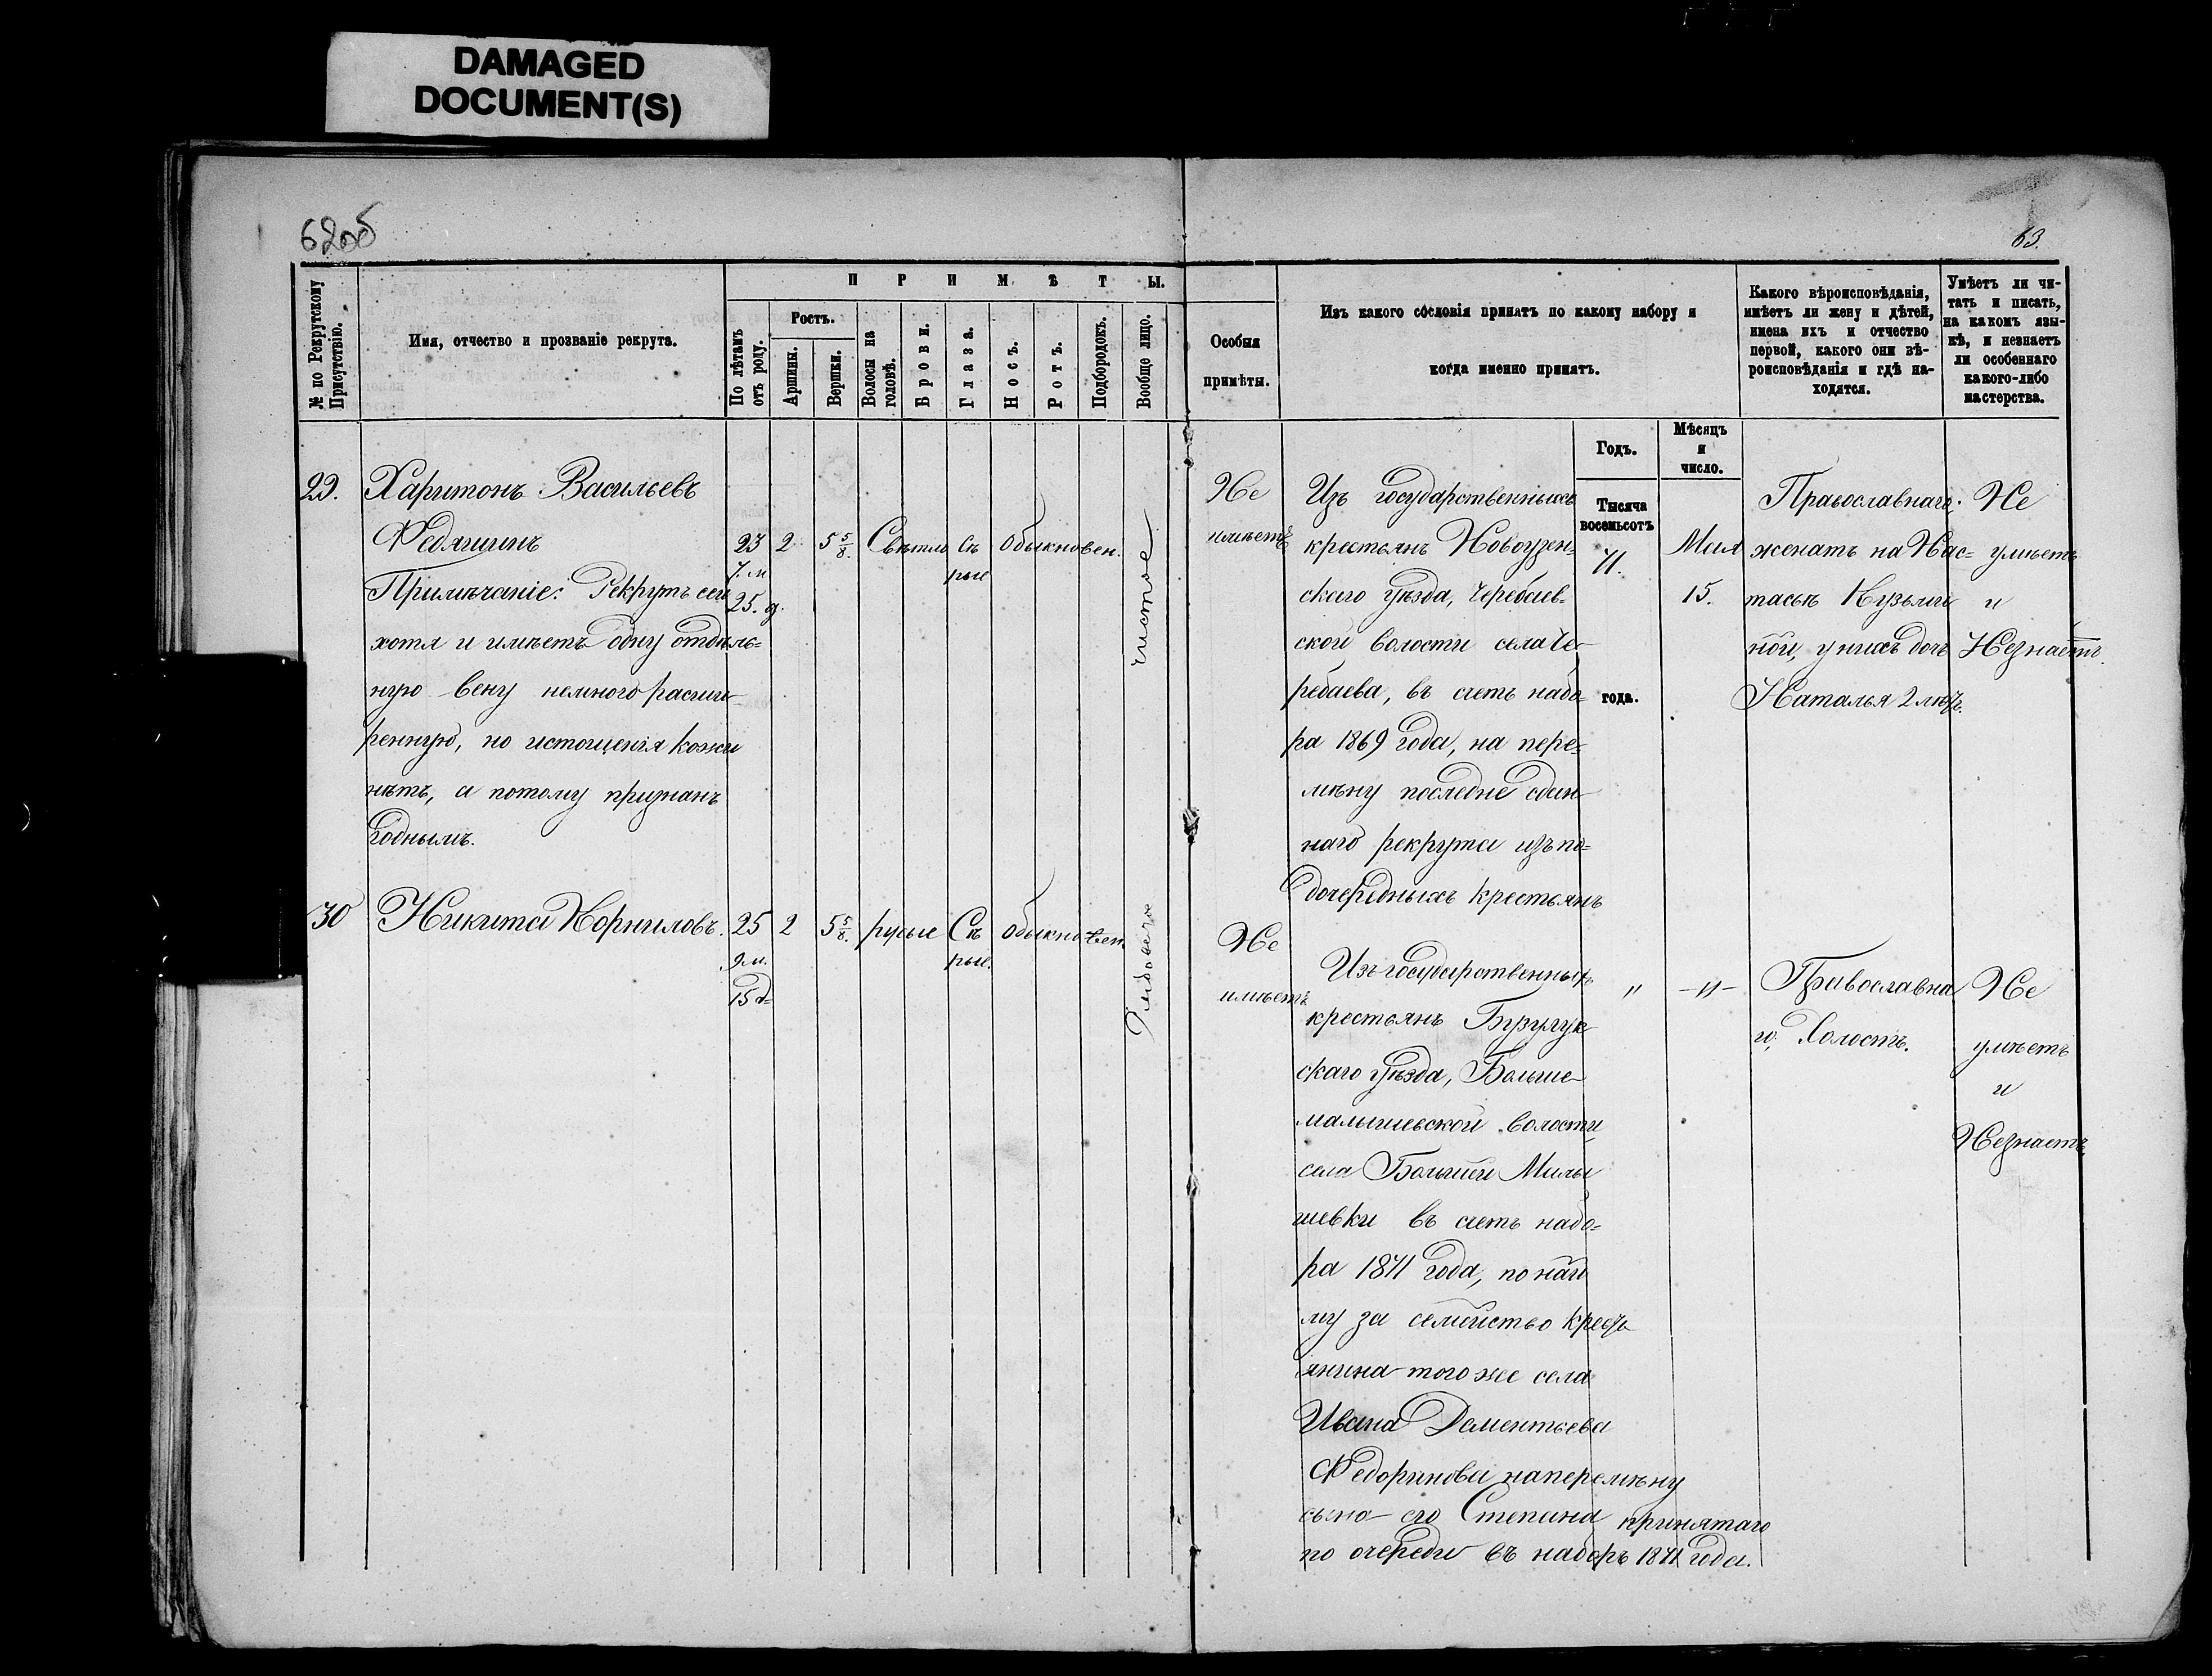 DAMAGED
DOCUMENT(S)
62об
63.
№ по Рекрутскому
Присутствію.
Имя, отчество и прозваніе рекрута.
П Р И М Ѣ Т Ы.
По лѣтамъ
отъ роду.
Ростъ.
Аршины.
Вершки.
Волосы на
головѣ.
Брови.
Глаза.
Носъ.
Ротъ.
Подбородокъ.
Вообще лицо.
Особыя
примѣты.
Изъ какого сословія принятъ по какому набору и
когда именно принятъ.
Какого вѣроисповѣданія,
имѣетъ ли жену и дѣтей,
имена ихъ и отчество
первой, какого они вѣ-
роисповѣданія и гдѣ на-
ходятся.
Умѣетъ ли чи-
тать и писать,
на какомъ язы-
кѣ, и незнаетъ
ли особеннаго
какого-либо
мастерства.
Годъ.
Мѣсяцъ
и
число.
29.
Харитонъ Васильевъ
Федяшинъ
Примѣчаніе: Рекрутъ сей
хотя и имѣетъ одну отдѣль=
ную вену немного расши-
ренную, но истощенія кожи
нѣтъ, а потому признанъ
годнымъ.
23
7. м
25. д.
2
5 5/8.
Свѣтло
Сѣ
рые
Обыкновен.
чистое
Не
имѣетъ
Изъ государственныхъ
крестьянъ Новоузен-
скаго уѣзда, Черебаев-
ской волости села Че-
ребаева, въ счетъ набо-
ра 1869 года, на пере=
мѣну последне
наго рекрута изъ по=
дочередныхъ крестьянъ
Тысяча
восемьсотъ
71.
года.
Мая
15.
Православнаго;
женатъ на Нас=
тасьѣ Кузьми
ной, у нихъ дочь
Наталья 2 лѣтъ.
Не
умѣетъ
и
Незнаетъ.
30
Никита Корниловъ.
25
9 м.
15 д=
2
5 5/8.
русые
Сѣ
рые.
Обыкновен.
Не
имѣетъ
Изъ государственныхъ
крестьянъ Бузулук
скаго уѣзда, Больше-
малышевской волости,
села Большой Малы
шевки въ счетъ набо-
ра 1871 года, по най
му за семейство крест
янина того же села
Ивана Дементьева
Федоринова на перемѣну
сына его Степана принятаго
по очереди въ наборъ 1871 года.
"
-"-
Православна
го; Холостъ.
Не
умѣетъ
и
Незнаетъ.